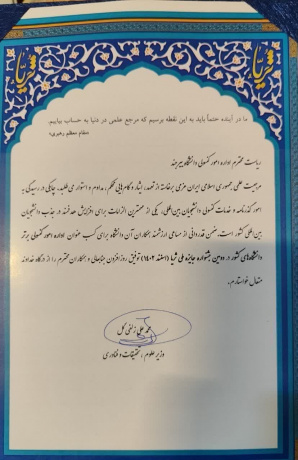 ثریا
ثریا
ما در آینده حتماً باید به این نقطه برسیم که مرجع علمی در دنیا به حساب بیاییم.
«مقام معظم رهبری»
ریاست محترم اداره امور کنسولی دانشگاه بیرجند
مرجعیت علمی جمهوری اسلامی ایران عزمی برخاسته از تعهد، ایثار و گام‌هایی محکم، مداوم و استوار می‌طلبد. چابکی در رسیدگی به
امور گذرنامه و خدمات کنسولی دانشجویان بین‌المللی، یکی از مهمترین الزامات برای افزایش هدفمند در جذب دانشجویان
بین‌المللی کشور است. ضمن قدردانی از مساعی ارزشمند همکاران آن دانشگاه برای کسب عنوان اداره امور کنسولی برتر
دانشگاه‌های کشور در دومین جشنواره جایزه ملی ثریا (اسفند ۱۴۰۲) توفیق روزافزون جنابعالی و همکاران محترم را از درگاه خداوند
متعال خواستارم.
محمدعلی زلفی گل
وزیر علوم، تحقیقات و فناوری